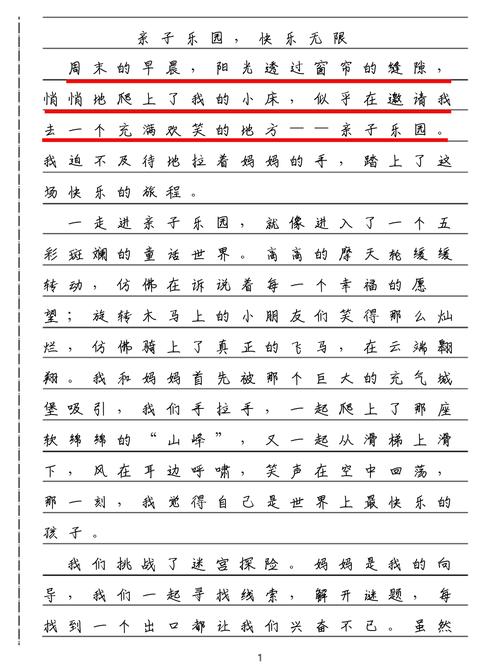 亲子乐园，快乐无限
周末的早晨，阳光透过窗帘的缝隙，
悄悄地爬上了我的小床，似乎在邀请我
去一个充满欢笑的地方——亲子乐园。
我迫不及待地拉着妈妈的手，踏上了这
场快乐的旅程。
一走进亲子乐园，就像进入了一个五
彩斑斓的童话世界。高高的摩天轮缓缓
转动，仿佛在诉说着每一个幸福的愿
望；旋转木马上的小朋友们笑得那么灿
烂，仿佛骑上了真正的飞马，在云端翱
翔。我和妈妈首先被那个巨大的充气城
堡吸引，我们手拉手，一起爬上了那座
软绵绵的“山峰”，又一起从滑梯上滑
下，风在耳边呼啸，笑声在空中回荡，
那一刻，我觉得自己是世界上最快乐的
孩子。
我们挑战了迷宫探险。妈妈是我的向
导，我们一起寻找线索，解开谜题，每
找到一个出口都让我们兴奋不已。虽然
1